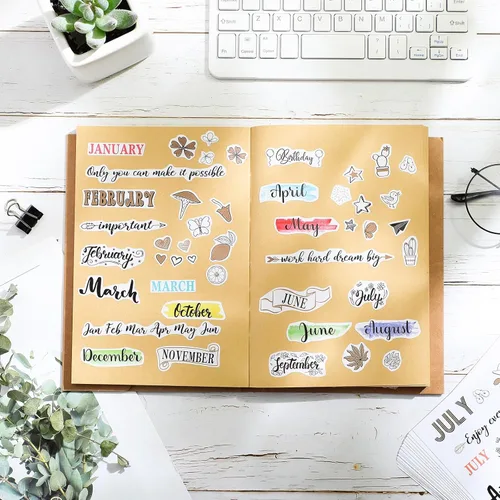 JANUARY
Only you can make it possible
FEBRUARY
important
February
March
MARCH
October
Jan Feb Mar Apr May Jun
December
NOVEMBER
Birthday
April
May
work hard dream big
JUNE
July
June
August
September
JULY
Enjoy
JULY